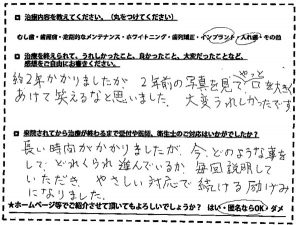 ■治療内容を教えてください。（丸をつけてください）
むし歯・歯周病・定期的なメンテナンス・ホワイトニング・歯列矯正・インプラント・入れ歯・その他
■治療を終えられて、うれしかったこと、良かったこと、大変だったことなど、
感想をご自由にお書きください。
約2年かかりましたが 2年前の写真を見てやっと口を大きく
あけて笑えるなと思いました。大変うれしかったです。
■来院されてから治療が終わるまで受付や医師、衛生士のご対応はいかがでしたか？
長い時間がかかりましたが、今、どのような事を
して、どれくらい進んでいるか、毎回説明して
いただき、やさしい対応で続ける励みに
になりました。
★ホームページ等でご紹介させて頂いてもよろしいでしょうか？ はい・匿名ならOK・ダメ